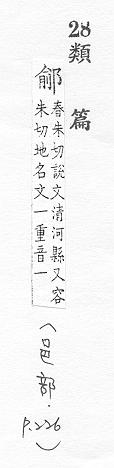 28
類篇
鄃
春朱切說文清河縣又容
朱切地名文一重音一
(邑部.
p.226)